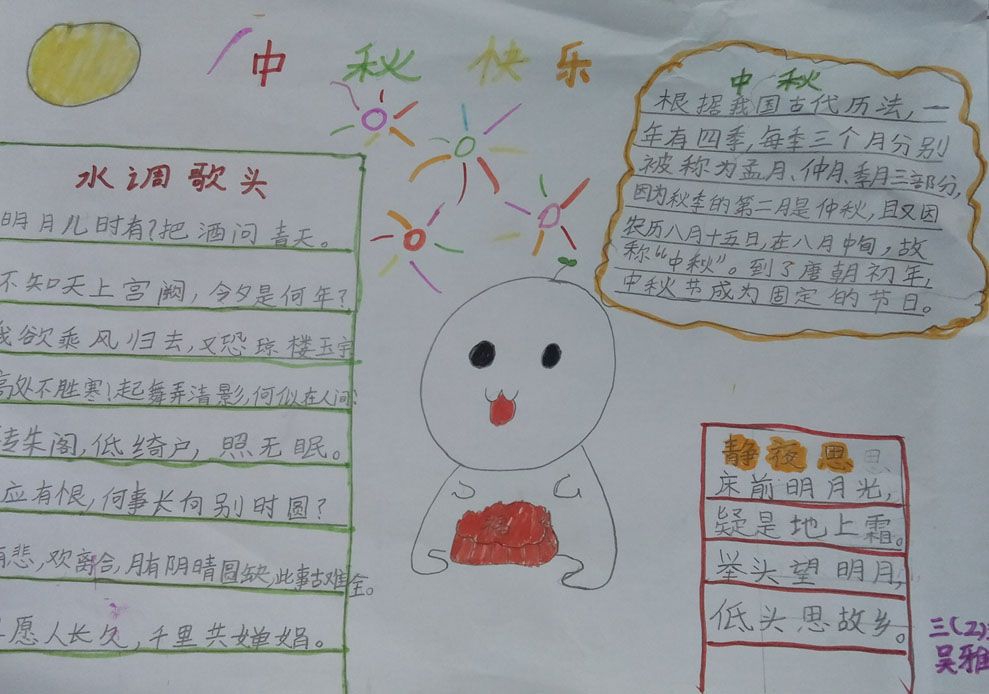 中秋快乐
水调歌头
明月几时有?把酒问青天。
不知天上宫阙,今夕是何年?
我欲乘风归去,又恐琼楼玉宇
高处不胜寒!起舞弄清影,何似在人间?
转朱阁,低绮户,照无眠。
应有恨,何事长向别时圆?
有悲,欢离合,月有阴晴圆缺,此事古难全。
愿人长久,千里共婵娟。
中秋
根据我国古代历法,一
年有四季,每季三个月分别
被称为孟月、仲月、季月三部分,
因为秋季的第二月是仲秋,且又因
农历八月十五日,在八月中旬,故
称“中秋”。到了唐朝初年,
中秋节成为固定的节日。
静夜思思
床前明月光,
疑是地上霜。
举头望明月,
低头思故乡。
三(2)
吴雅